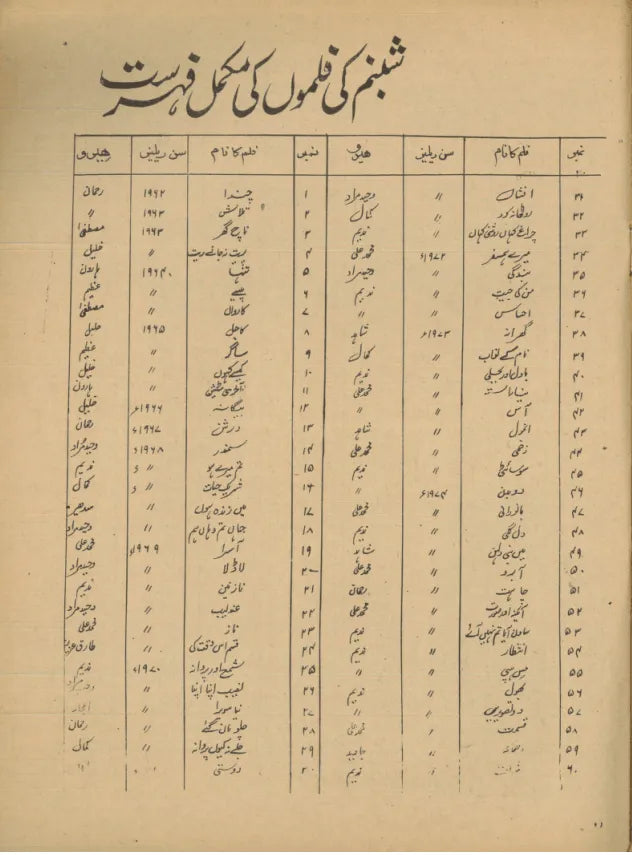 شبنم کی فلموں کی مکمل فہرست
نمبر فلم کا نام سن ریلیز ہیرو نمبر فلم کا نام سن ریلیز ہیرو
۳۱ افشاں 〃 وحید مراد ۱ چندا ۱۹۶۲ رحمان
۳۲ روٹھا نہ کرو 〃 کمال ۲ تلاش ۱۹۶۳ 〃
۳۳ چراغ کہاں روشنی کہاں 〃 ندیم ۳ ناچ گھر ۱۹۶۳ مصطفیٰ
۳۴ میرے ہمسفر ۱۹۷۲ء محمد علی ۴ پریت نہ جانے ریت 〃 خلیل
۳۵ بندگی 〃 وحید مراد ۵ تنہا ۱۹۶۴ء ہارون
۳۶ من کی جیت 〃 ندیم ۶ پیسے 〃 عظیم
۳۷ احساس 〃 〃 ۷ کارواں 〃 مصطفیٰ
۳۸ گھرانہ ۱۹۷۳ء شاہد ۸ کاجل ۱۹۶۵ خلیل
۳۹ نام کے نواب 〃 کمال ۹ ساگر 〃 عظیم
۴۰ بادل اور بجلی 〃 ندیم ۱۰ کیسے کہوں 〃 خلیل
۴۱ نیا راستہ 〃 محمد علی ۱۱ آخری اسٹیشن 〃 ہارون
۴۲ آس 〃 〃 ۱۲ بیگانہ ۱۹۶۶ء خلیل
۴۳ انمول 〃 شاہد ۱۳ درشن ۱۹۶۷ء رحمان
۴۴ زخمی 〃 محمد علی ۱۴ سمندر ۱۹۶۸ء وحید مراد
۴۵ سوسائٹی 〃 ندیم ۱۵ تم میرے ہو 〃 ء ندیم
۴۶ دو بدن ۱۹۷۴ء 〃 ۱۶ شریک حیات 〃 ء کمال
۴۷ بانو رانی 〃 محمد علی ۱۷ میں زندہ ہوں 〃 سدھیر
۴۸ دل لگی 〃 ندیم ۱۸ جہاں تم وہاں ہم 〃 وحید مراد
۴۹ میں بنی دلہن 〃 شاہد ۱۹ آسرا ۱۹۶۹ء محمد علی
۵۰ آبرو 〃 محمد علی ۲۰ لاڈلا 〃 وحید مراد
۵۱ چاہت 〃 رحمان ۲۱ نازنین 〃 ندیم
۵۲ آئینہ اور صورت 〃 محمد علی ۲۲ عندلیب 〃 وحید مراد
۵۳ ساون آیا تم نہیں آئے 〃 ندیم ۲۳ ناز 〃 محمد علی
۵۴ انتظار 〃 ندیم ۲۴ قسم اس وقت کی 〃 طارق عزیز
۵۵ مس ہپی 〃 〃 ۲۵ شمع اور پروانہ ۱۹۷۰ء ندیم
۵۶ بھول 〃 ندیم ۲۶ نصیب اپنا اپنا 〃 وحید مراد
۵۷ دو تصویریں 〃 ۲۷ 〃 اعجاز
۵۸ قسمت 〃 محمد علی ۲۸ چلو مان گئے 〃 رحمان
۵۹ 〃 جاوید ۲۹ جلے نہ کیوں پروانہ 〃 کمال
۶۰ شرافت ندیم ۳۰ دوستی